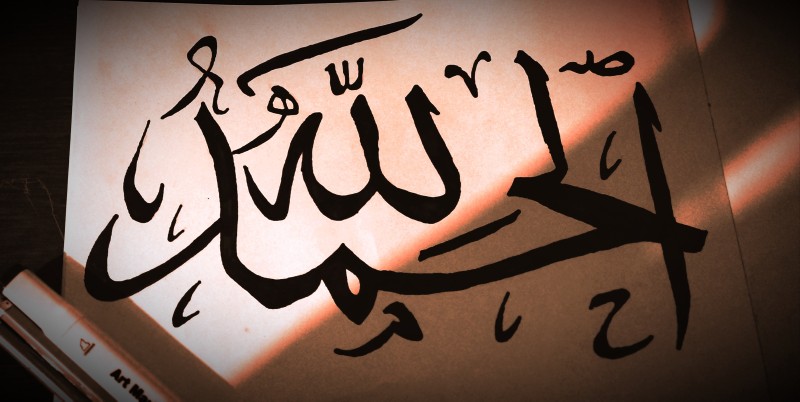 الحمد لله
Art Mar